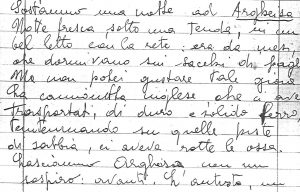 Sostammo una notte ad Argheisa
Notte fresca sotto una tenda, in un
bel letto con la rete: era da mesi
che dormivano sui sacchi di paglia
Ma non potei gustare tale gioia
La camionetta inglese che ci ave
trasportati, di duro e solido ferro,
tentennando su quelle piste
di sabbia, ci aveva rotte le ossa.
Lasciammo Argheisa con un
sospiro: avanti. L'autista, un